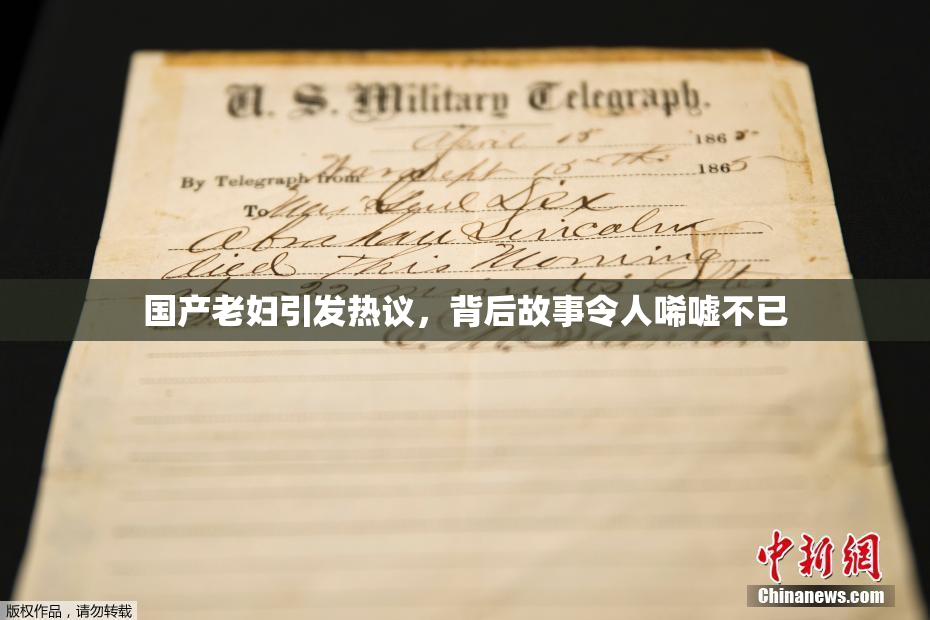 U. S. Military Telegraph.
April 15 1865
By Telegraph from War Dept 15th 1865
To Maj Genl Dix
Abraham Lincoln
died This Morning
22 minutes after
国产老妇引发热议，背后故事令人唏嘘不已
E. M. Stanton
中新網
Chinanews.com
版权作品，请勿转载